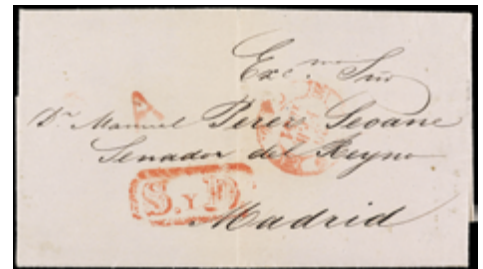 Exc.mo Sñr
Dn Manuel Perez Seoane
Senador del Reyno
Madrid
A
S. Y D